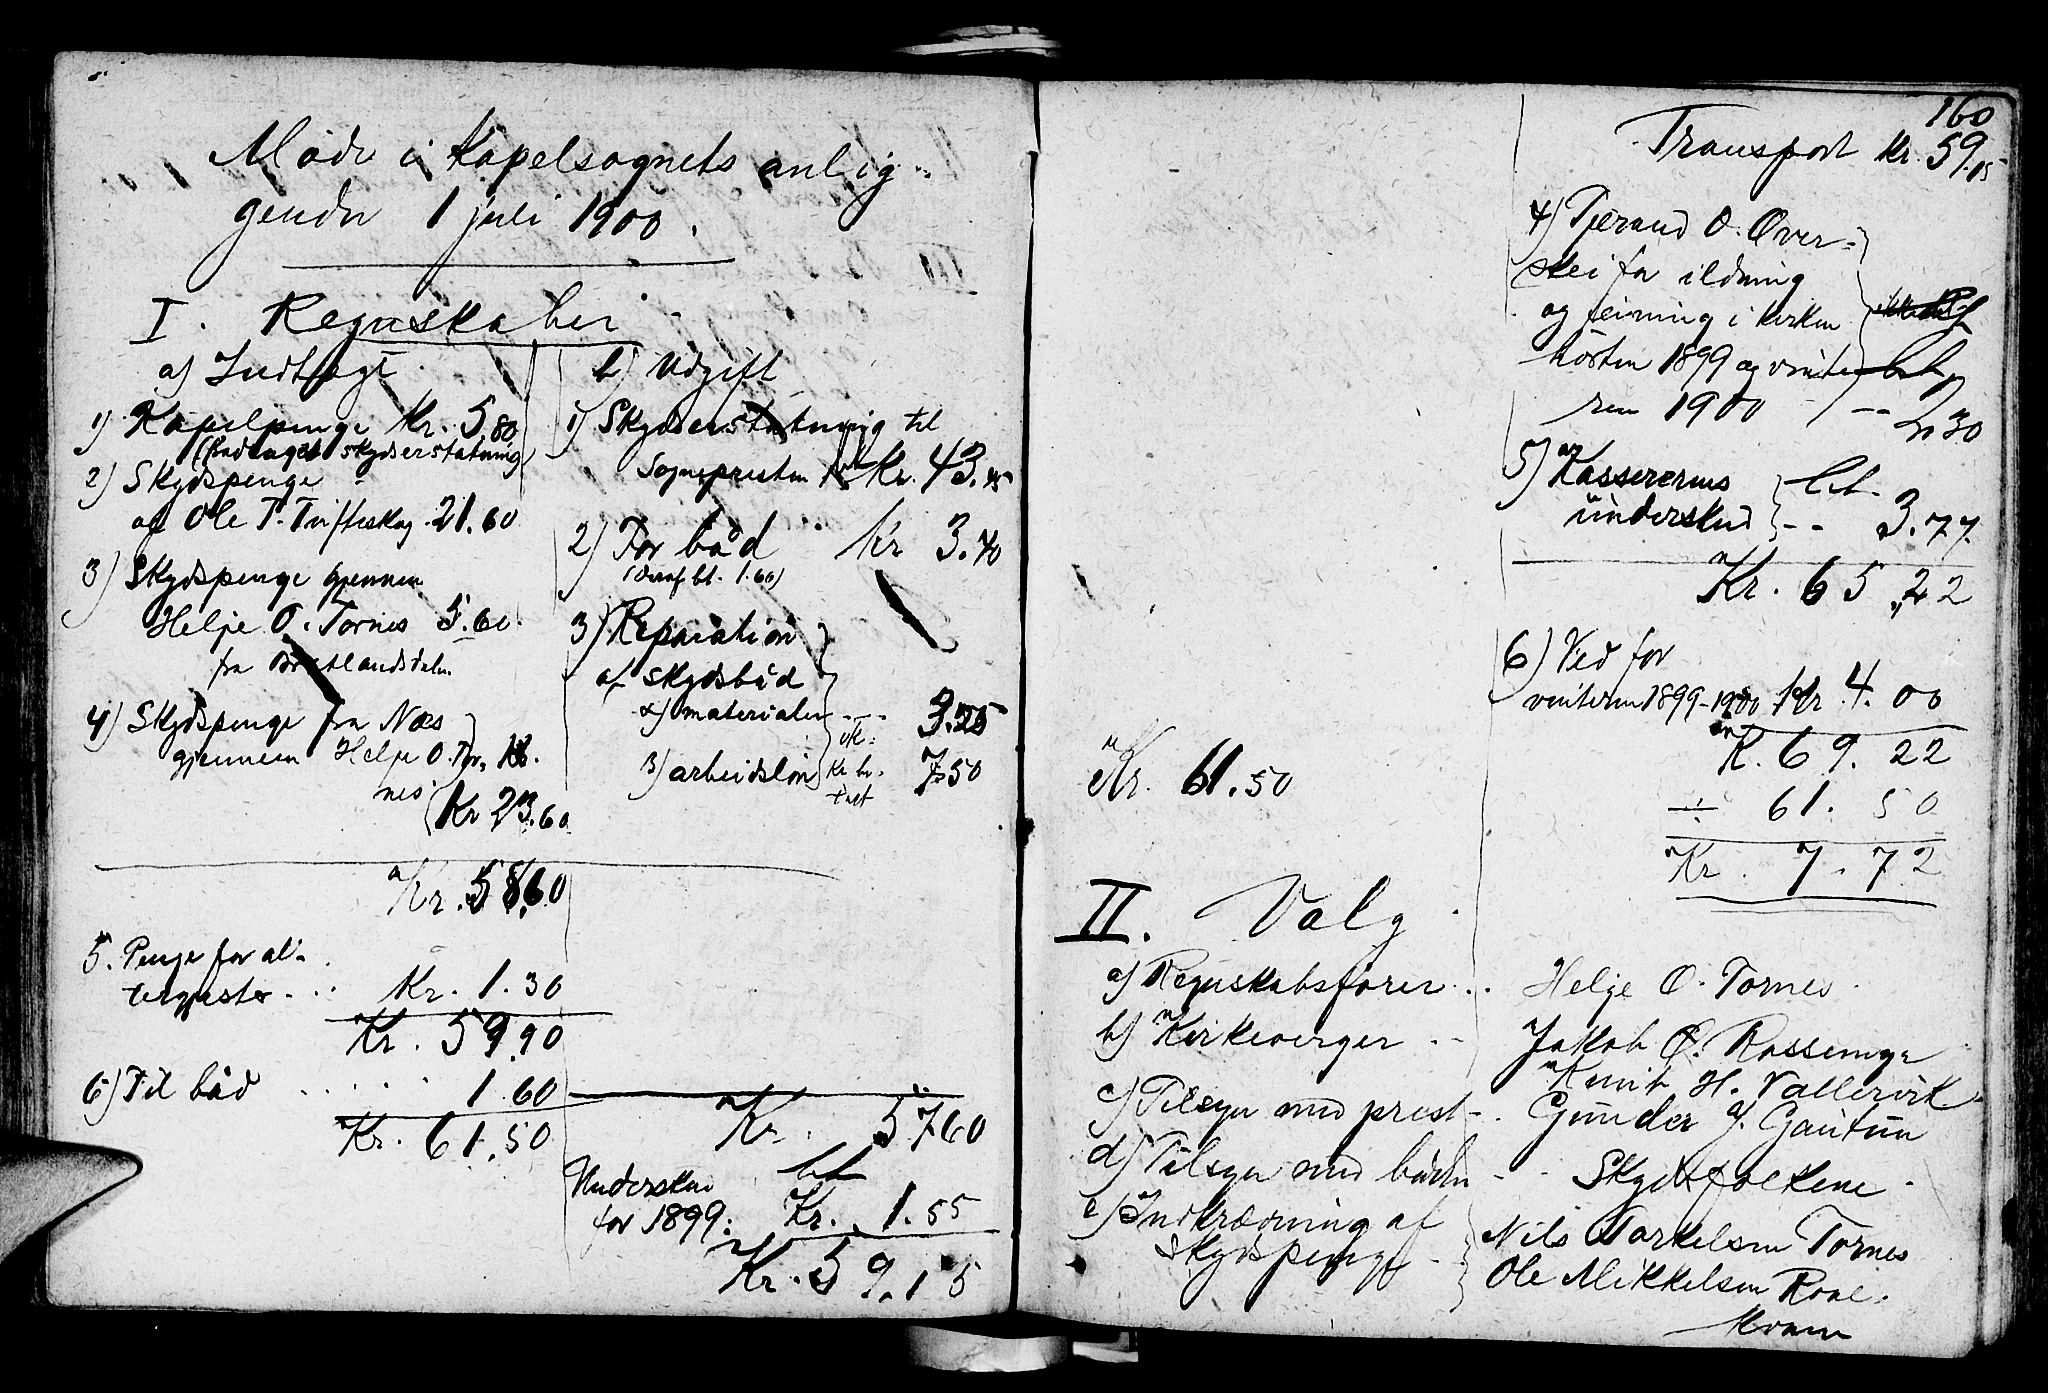 Møde i Kapelsognets anlig-
gender 1 juli 1900.
I. Regnskaber
a) Indtægt
1) Kapelpenge Kr. 5.80
skydserstatning)
2) Skydspenge
af Ole T. Tufteskog 21.60
3) Skydspenge gjennem
Helje O. Tornes 5.60
fra Bratlandsdalen
4) Skydspenge fra Næs
gjennem Helje O. Tor-
nes
Kr 23.60
Kr. 58.60
5. Penge for al-
tergjester ... Kr. 1.30
Kr. 59.90
6) Til båd .... 1.60
Kr. 61.50
b) Udgift
1) Skydserstatning til
Sognepresten Kr. 43.45
2) For båd Kr 3.40
(deraf bt. 1.60)
3) Reparation
af skydsbåd
α) materialer -- 3.25
β) arbeidsløn 7.50
Kr. 57.60
Underskud bt
for 1899: Kr. 1.55
Kr. 59.15
160
Transport Kr. 59.15
4) Tjerand O. Øver-
skei for ildning
og feining i kirken
høsten 1899 og vinte-
ren 1900 -- 2.30
5) Kassererens bt.
underskud -- 3.77.
Kr. 65.22
6) Ved for
vinteren 1899-1900 Kr. 4.00
K. 69.22
Kr. 61.50
÷ 61.50
Kr. 7.72
II. Valg
a) Regnskabsfører .. Helje O. Tornes.
b) Kirkeverger .. Jakob Ø. Rossemyr
Knut H. Vallervik
c) Tilsyn med prest -. Gunder G. Gautun
d) Tilsyn med båden - - Skydsfolkene.
e) Indkrævning af Nils Torkelsen Tornes
skydspenge - Ole Mikkelsen Roal-
kvam